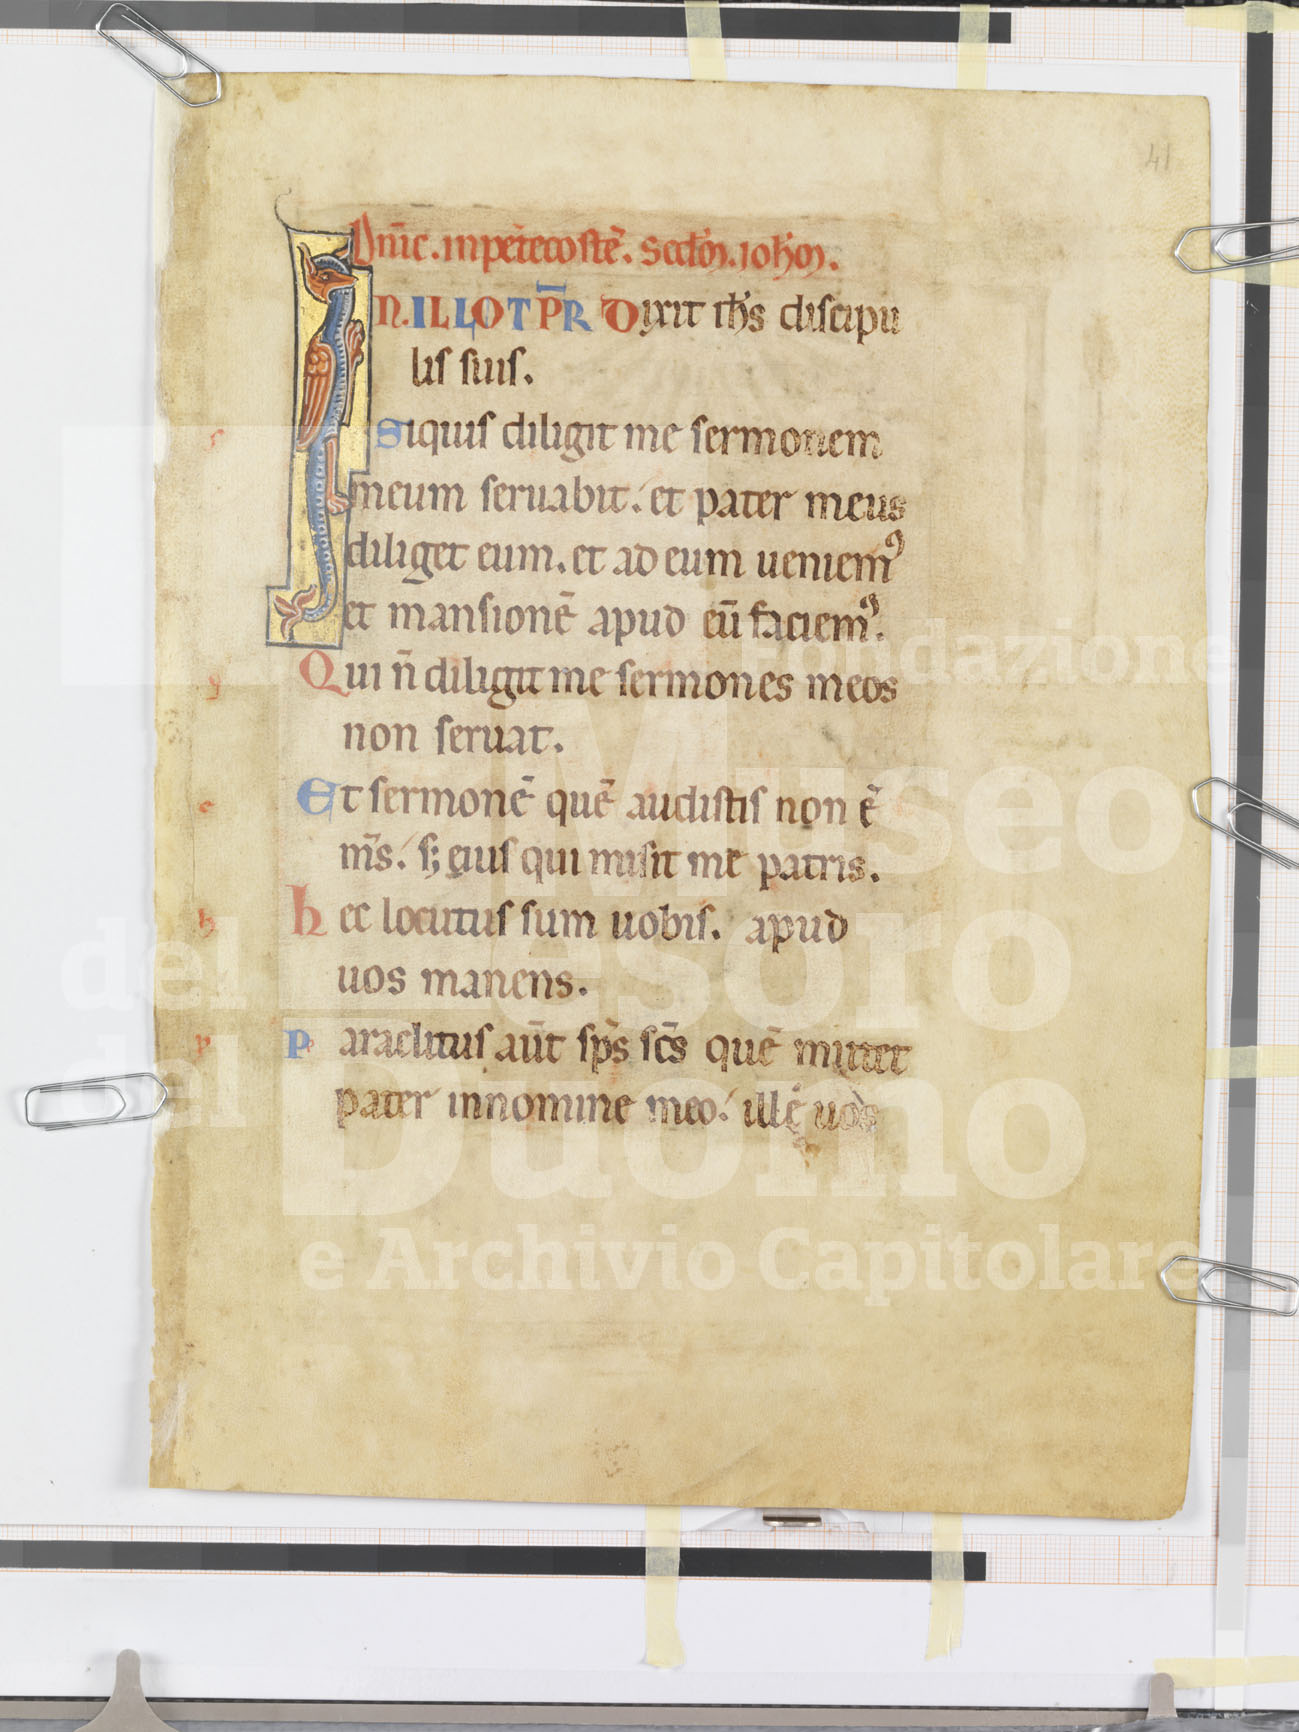 41
Dn̄ic. in pētecostē. Scd̄m. Ioh̄m.
IN. ILLO T P̄R Dixit ih̄s discipu
lis suis.
Siquis diligit me sermonem
meum seruabit. et pater meus
diliget eum. et ad eum ueniemꝰ
et mansionē apud eū faciemꝰ.
Qui n̄ diligit me sermones meos
non seruat.
Et sermonē quē audistis non ē
m̄s. s; eius qui misit me patris.
hec locutus sum uobis. apud
uos manens.
Paraclitus aūt sp̄s sc̄s quē mittet
pater innomine meo. ille uos
Fondazione
Museo
del Tesoro
del Duomo
e Archivio Capitolare